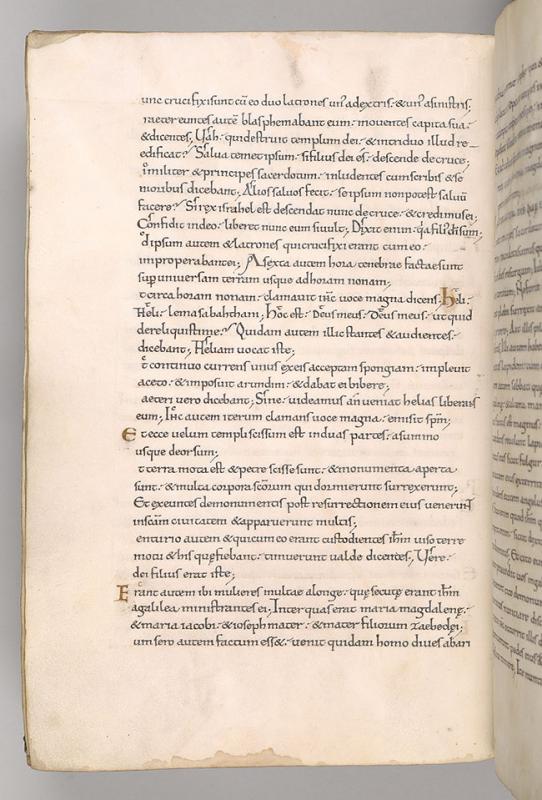 unc crucifixi sunt cū eo duo latrones un᾿ adextris· & un᾿ asinistris;
raetereuntes autē blasphemabant eum· mouentes capita sua·
& dicentes; Uah· qui destruit templum dei· & intriduo illud re
edificat· Salua temetipsum· sifilius dei es· descende decruce;
imiliter & principes sacerdotum· inludentes cum scribis & se
nioribus dicebant; Alios saluos fecit· seipsum nonpotest saluū
facere· Sirex israhel est descendat nunc decruce· & credimus ei;
Confidit indeo· liberet nunc eum siuult; Dixit enim· qa fili᾿ di sum;
dipsum autem & latrones quicrucifixi erant cum eo·
improperabant ei; A sexta autem hora tenebrae factae sunt
sup uniuersam terram usque adhoram nonam;
t circa horam nonam· clamauit ihc uoce magna dicens· heli·
Heli· lema sabahthani; Hoc est· Deus meus· Deus meus· ut quid
dereliquisti me· Quidam autem illic stantes & audientes·
dicebant; Heliam uocat iste;
t continuo currens unus exeis acceptam spongiam· impleuit
aceto· & imposuit arundini· & dabat ei bibere;
aeteri uero dicebant; Sine· uideamus an ueniat helias liberans
eum; Ihc autem iterum clamans uoce magna· emisit spm;
Et ecce uelum templi scissum est induas partes· asummo
usque deorsum;
t terra mota est & petre scisse sunt· & monumenta aperta
sunt· & multa corpora scōrum qui dormierunt surrexerunt;
Et exeuntes demonumentis post resurrectionem eius uenerunt
inscām ciuitatem & apparuerunt multis;
enturio autem & quicum eo erant custodientes ihm uiso terre
motu & his quę fiebant· timuerunt ualde dicentes; Uere·
dei filius erat iste;
Erant autem ibi mulieres multae alonge· quę secutę erant ihm
agalilea ministrantes ei; Inter quas erat maria magdalenę·
& maria iacobi· & ioseph mater· & mater filiorum zaebedei;
um sero autem factum ess&· uenit quidam homo diues abari